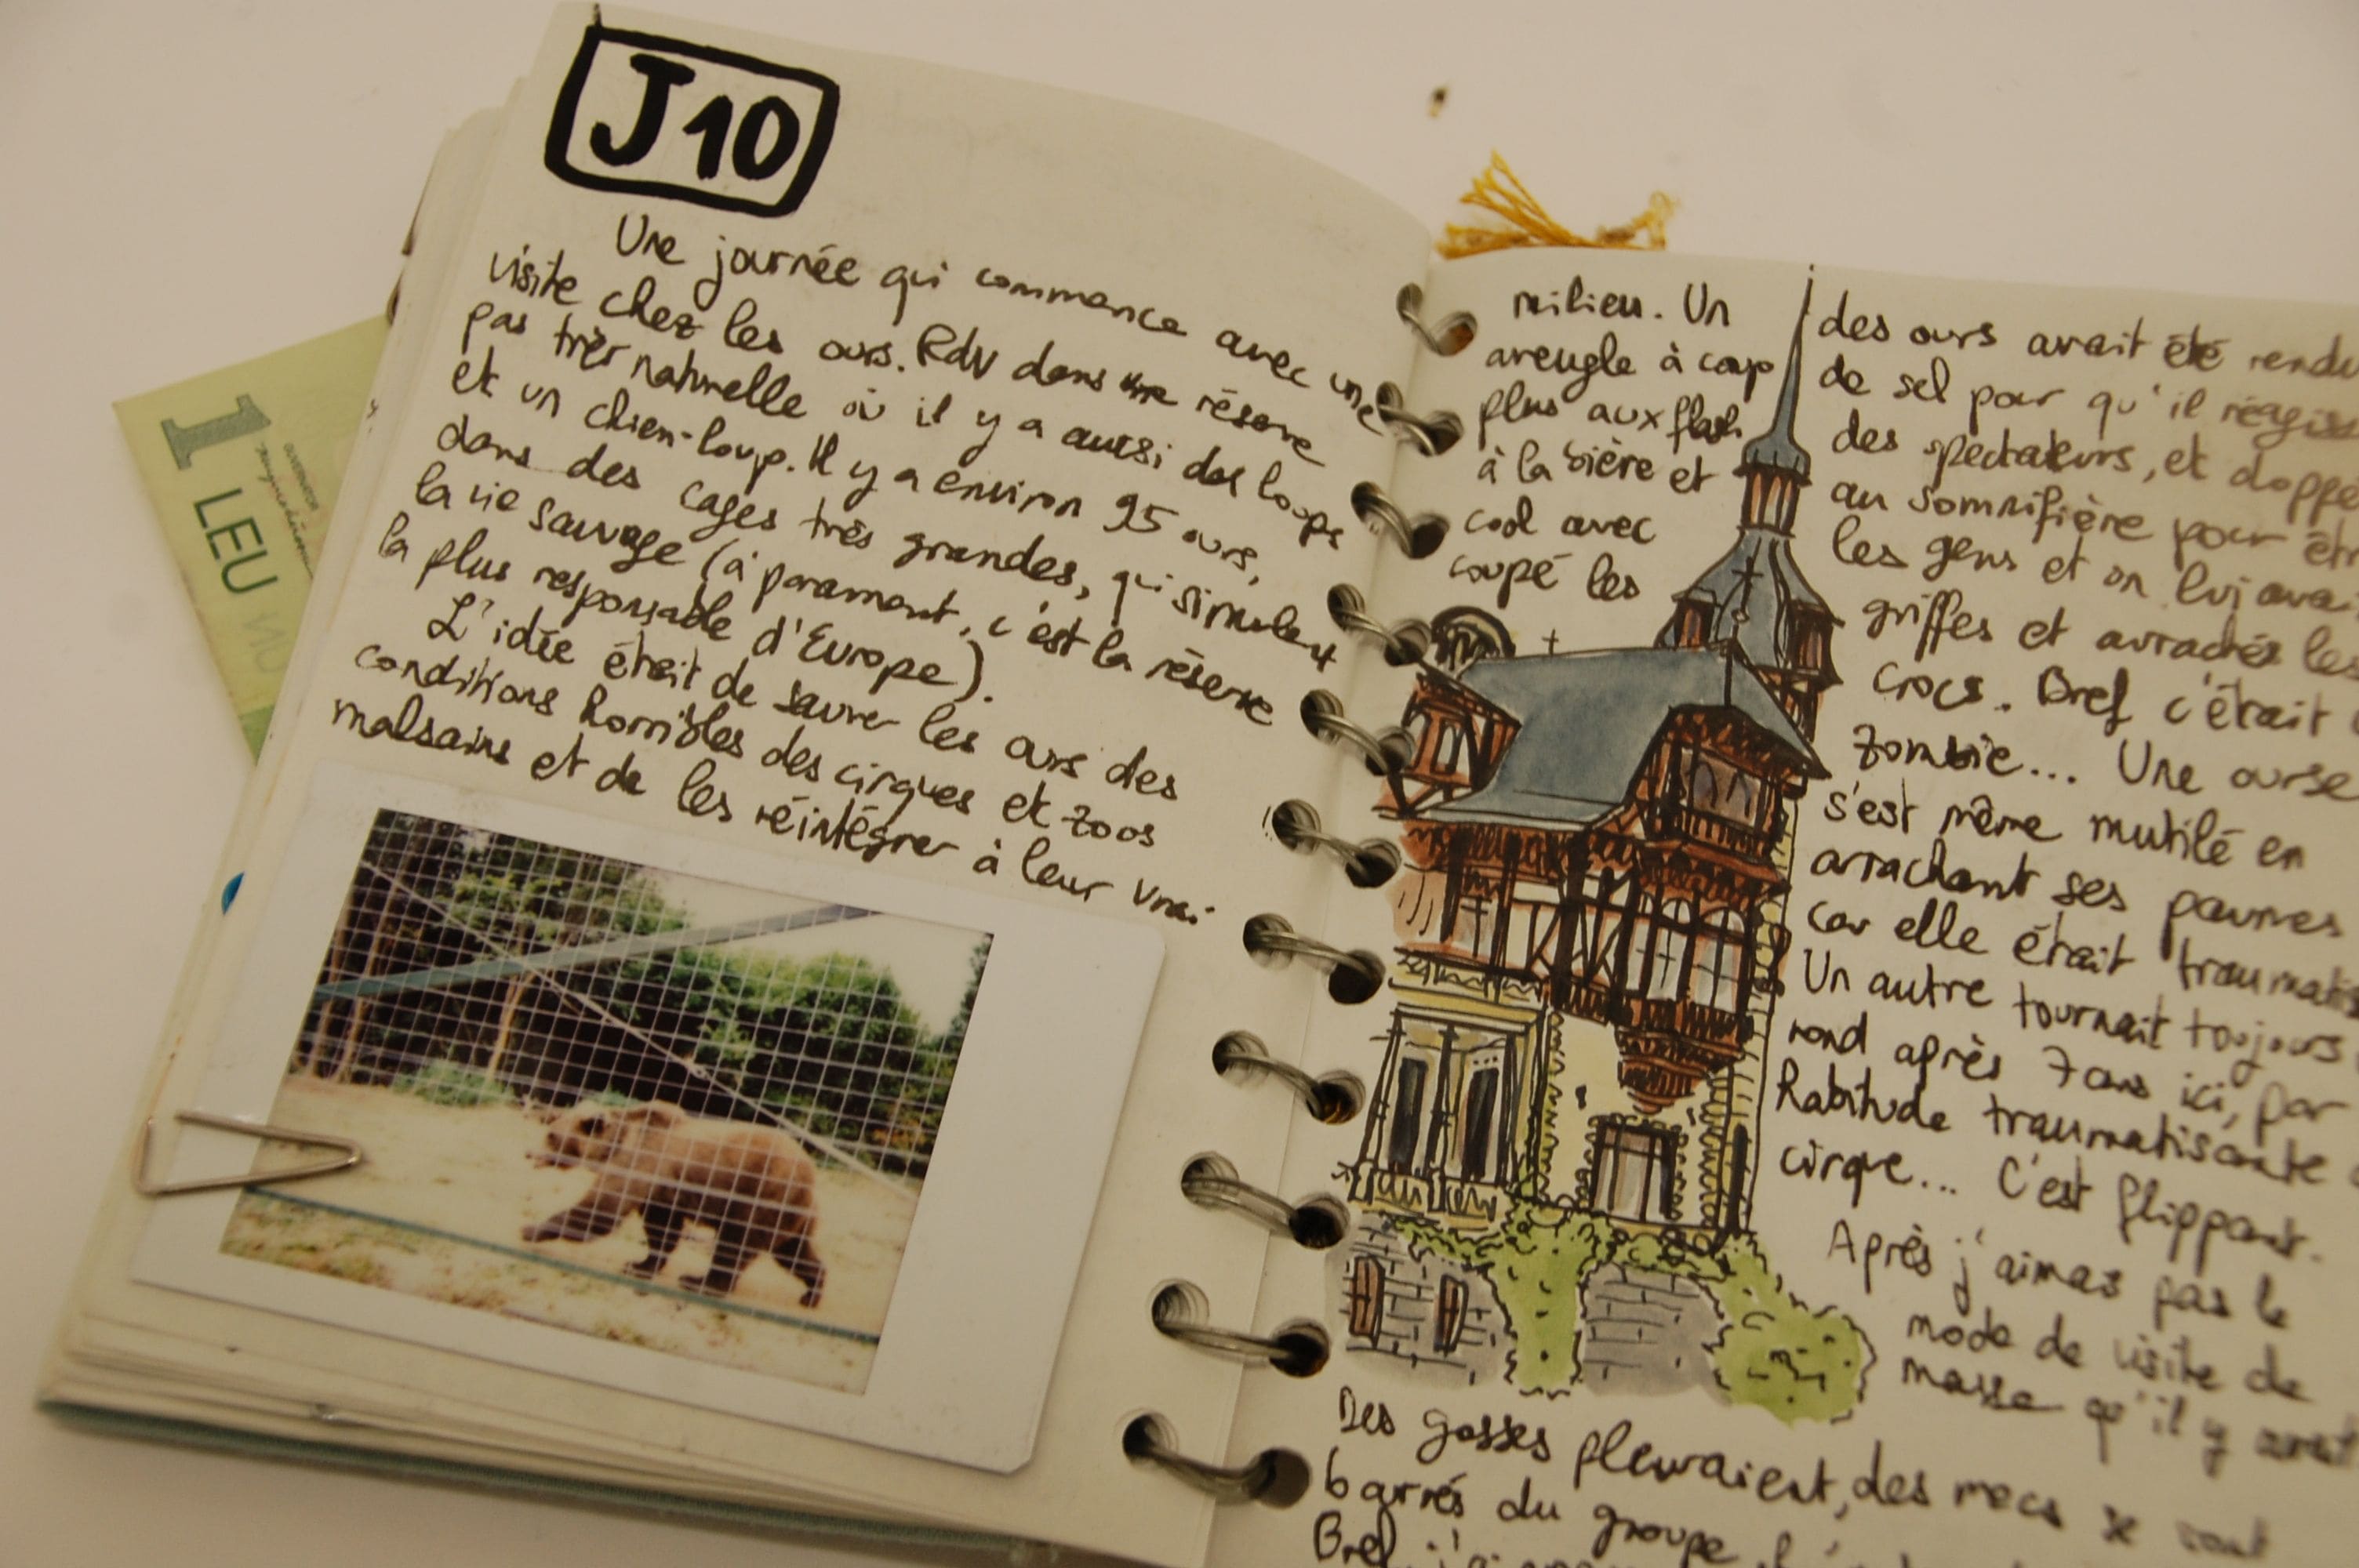 J10
Une journée qui commence avec une
visite chez les ours. Rdv dans une réserve
pas très naturelle où il y a aussi des loups
et un chien-loup. Il y a environ 95 ours,
dans des cages très grandes, qui simulent
la vie sauvage (à parament, c'est la réserve
la plus responsable d'Europe).
L'idée était de sauver les ours des
conditions horribles des cirques et zoos
malsains et de les réintégrer à leur vrai
milieu. Un des ours avait été rendu
aveugle à coup de sel pour qu'il réagisse
plus aux flash des spectateurs, et doppé
à la bière et au somnifière pour
cool avec les gens et on lui
coupé les griffes et arrachés les
crocs. Bref c'était
zombie... Une ourse
s'est même mutilé en
arrachant ses paumes
car elle était
Un autre tournait toujours
rond après 7 ans ici, par
habitude traumatisante
cirque... C'est flippant.
Après j'aimas pas le
mode de visite de
masse qu'il y avait
Des gosses pleuraient, des mecs
barrés du groupe
Bref
1
LEU